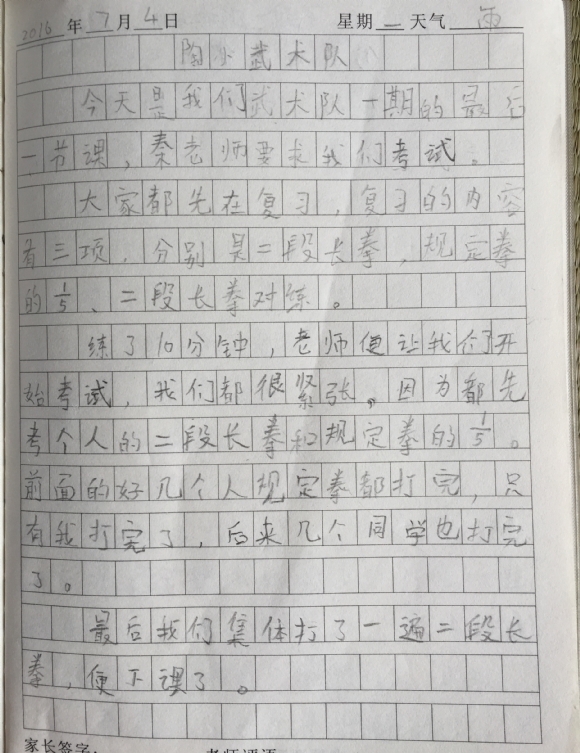 2016 年 7 月 4 日 星期 一 天气 雨
陶小武术队
今天是我们武术队一期的最后
一节课，秦老师要求我们考试。
大家都先在复习，复习的内容
有三项，分别是二段长拳，规定拳
的1/5、二段长拳对练。
练了10分钟，老师便让我们开
始考试，我们都很紧张。因为都先
考个人的二段长拳和规定拳的1/5。
前面的好几个人规定拳都打完，只
有我打完了，后来几个同学也打完
了。
最后我们集体打了一遍二段长
拳，便下课了。
家长签字：